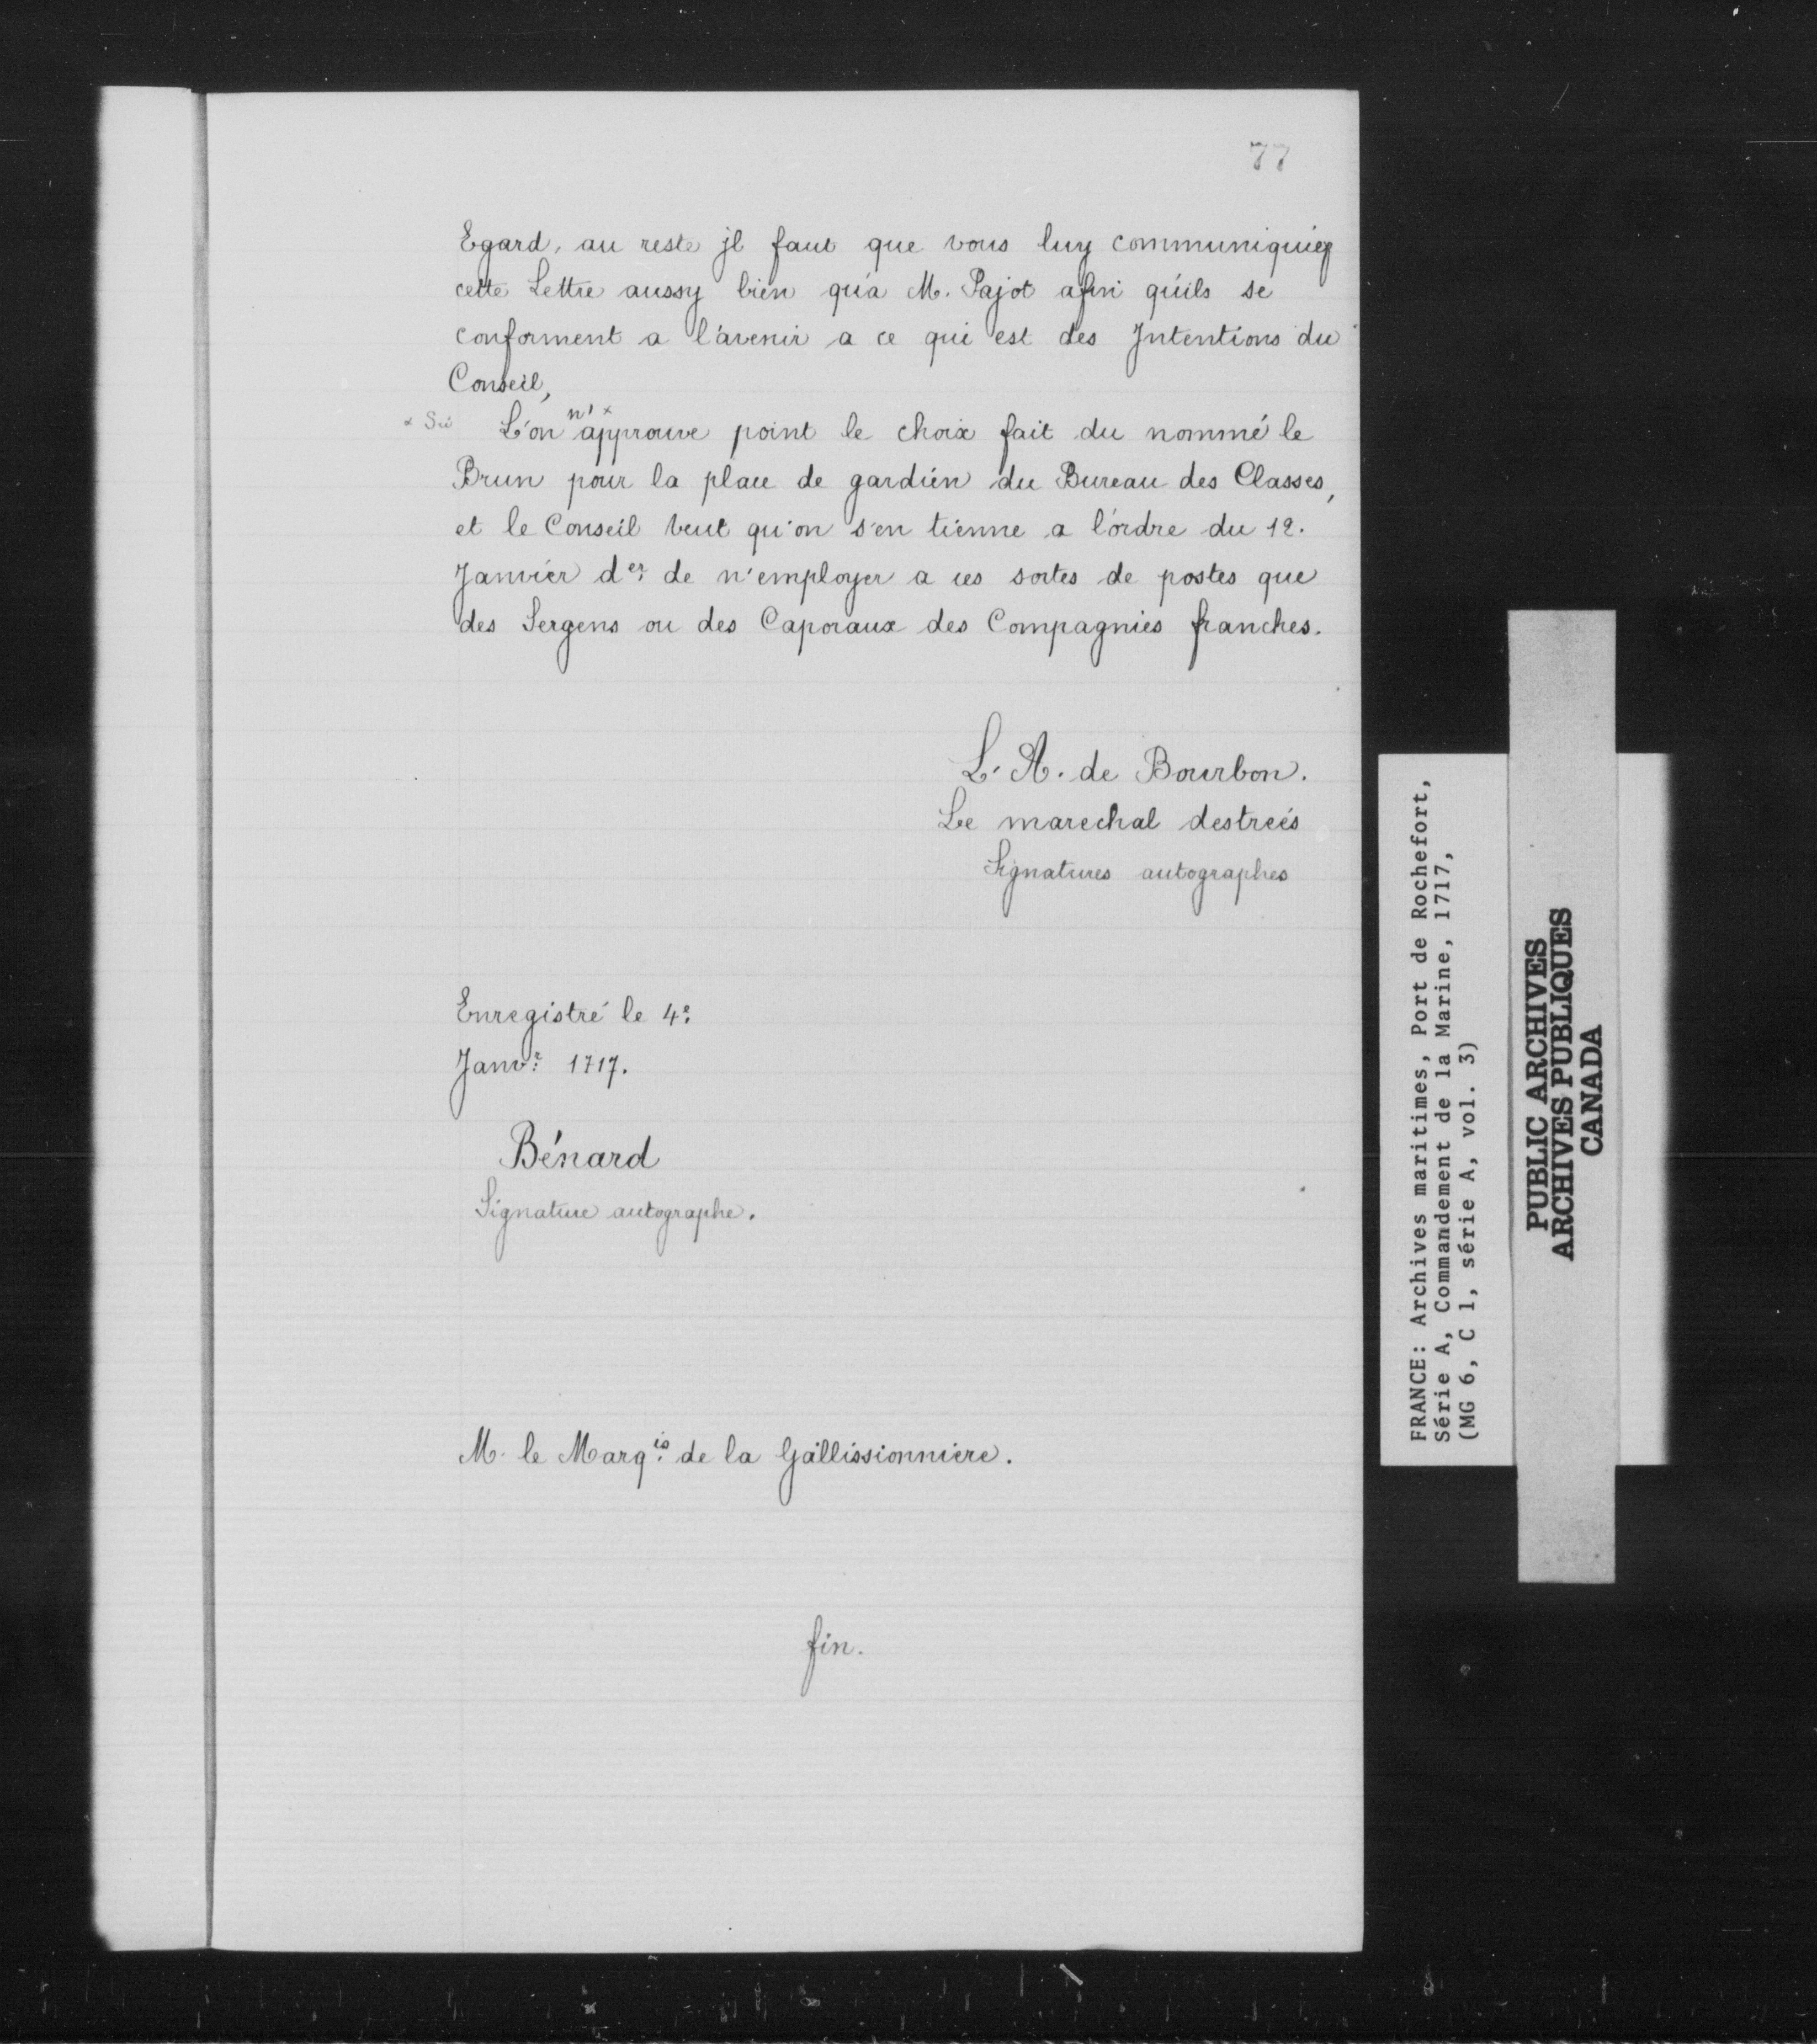 77
Egard, au reste jl faut que vous luy communiquiez
cette Lettre aussy bien qu'a M. Pajot afin qu'ils se
conforment a l'avenir a ce qui est des Jntentions du
Conseil,
x Sic L'on n' x approuve point le choix fait du nommé le
Brun pour la place de gardien du Bureau des Classes,
et le Conseil veut qu'on s'en tienne a l'ordre du 12.
Janvier der. de n'employer a ces sortes de postes que
des Sergens ou des Caporaux des Compagnies franches.
L. A. de Bourbon.
Le marechal destreés
Signatures autographes
Enregistré le 4e.
Janvr. 1717.
Bénard
Signature autographe.
M. le Marqis. de la Gallissionniere.
fin.
FRANCE: Archives maritimes, Port de Rochefort,
Série A, Commandement de la Marine, 1717,
(MG 6, C 1, série A, vol. 3)
PUBLIC ARCHIVES
ARCHIVES PUBLIQUES
CANADA